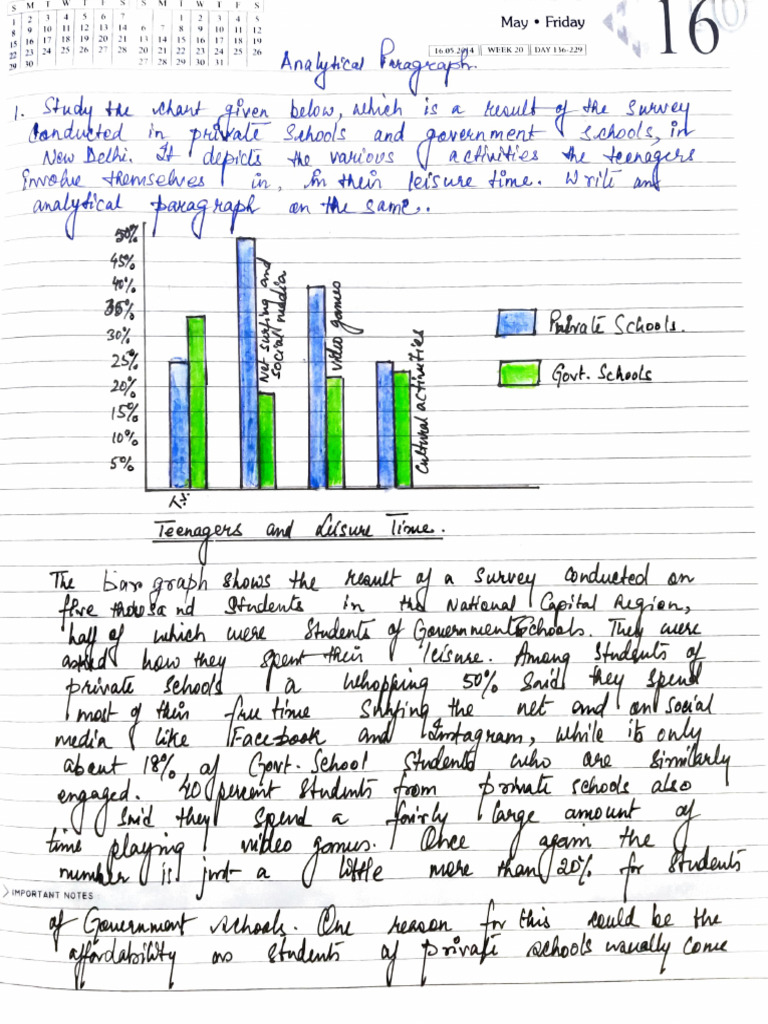 S M T W T F S
1 2 3 4 5 6 7
8 9 10 11 12 13 14
15 16 17 18 19 20 21
22 23 24 25 26 27 28
29 30
M T W T F S
1 2 3 4 5
6 7 8 9 10 11 12
13 14 15 16 17 18 19
20 21 22 23 24 25 26
27 28 29 30 31
May • Friday
16
16.05.2014 WEEK 20 DAY 136-229
Analytical Paragraph.
1. Study the chart given below, which is a result of the survey
conducted in private schools and government schools, in
New Delhi. It depicts the various activities the teenagers
involve themselves in, in their leisure time. Write an
analytical paragraph on the same.
50%
45%
40%
35%
30%
25%
20%
15%
10%
5%
T.V.
Net surfing and
social media
video games
Cultural activities
Private Schools.
Govt. Schools
Teenagers and Leisure Time.
The bar graph shows the result of a survey conducted on
five thousand students in the National Capital Region,
half of which were students of Government Schools. They were
asked how they spent their leisure. Among students of
private schools a whopping 50% said they spend
most of their free time surfing the net and on social
media like Facebook and Instagram, while it's only
about 18% of Govt. School students who are similarly
engaged. 40 percent students from private schools also
said they spend a fairly large amount of
time playing video games. Once again the
number is just a little more than 20% for students
IMPORTANT NOTES
of Government schools. One reason for this could be the
affordability as students of private schools usually come